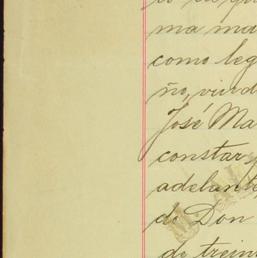 ma ma
como leg
ño, viud
José Ma
constar y
adelante,
de Don
de trein